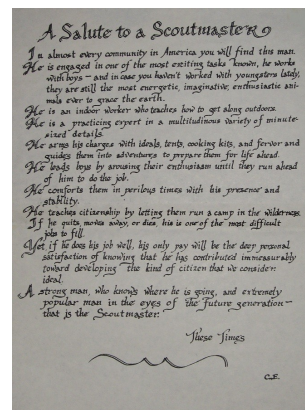 A Salute to a Scoutmaster
In almost every community in America you will find this man.
He is engaged in one of the most exciting tasks known, he works
with boys – and in case you haven't worked with youngsters lately,
they are still the most energetic, imaginative, enthusiastic ani-
mals ever to grace the earth.
He is an indoor worker who teaches how to get along outdoors.
He is a practicing expert in a multitudinous variety of minute-
sized details.
He arms his charges with ideals, tents, cooking kits, and fervor and
guides them into adventures to prepare them for life ahead.
He leads boys by arousing their enthusiasm until they run ahead
of him to do the job.
He comforts them in perilous times with his presence and
stability.
He teaches citizenship by letting them run a camp in the wilderness.
If he quits, moves away, or dies, his is one of the most difficult
jobs to fill.
Yet if he does his job well, his only pay will be the deep personal
satisfaction of knowing that he has contributed immeasurably
toward developing the kind of citizen that we consider
ideal.
A strong man, who knows where he is going, and extremely
popular man in the eyes of the future generation –
that is the Scoutmaster.
These Times
C.E.